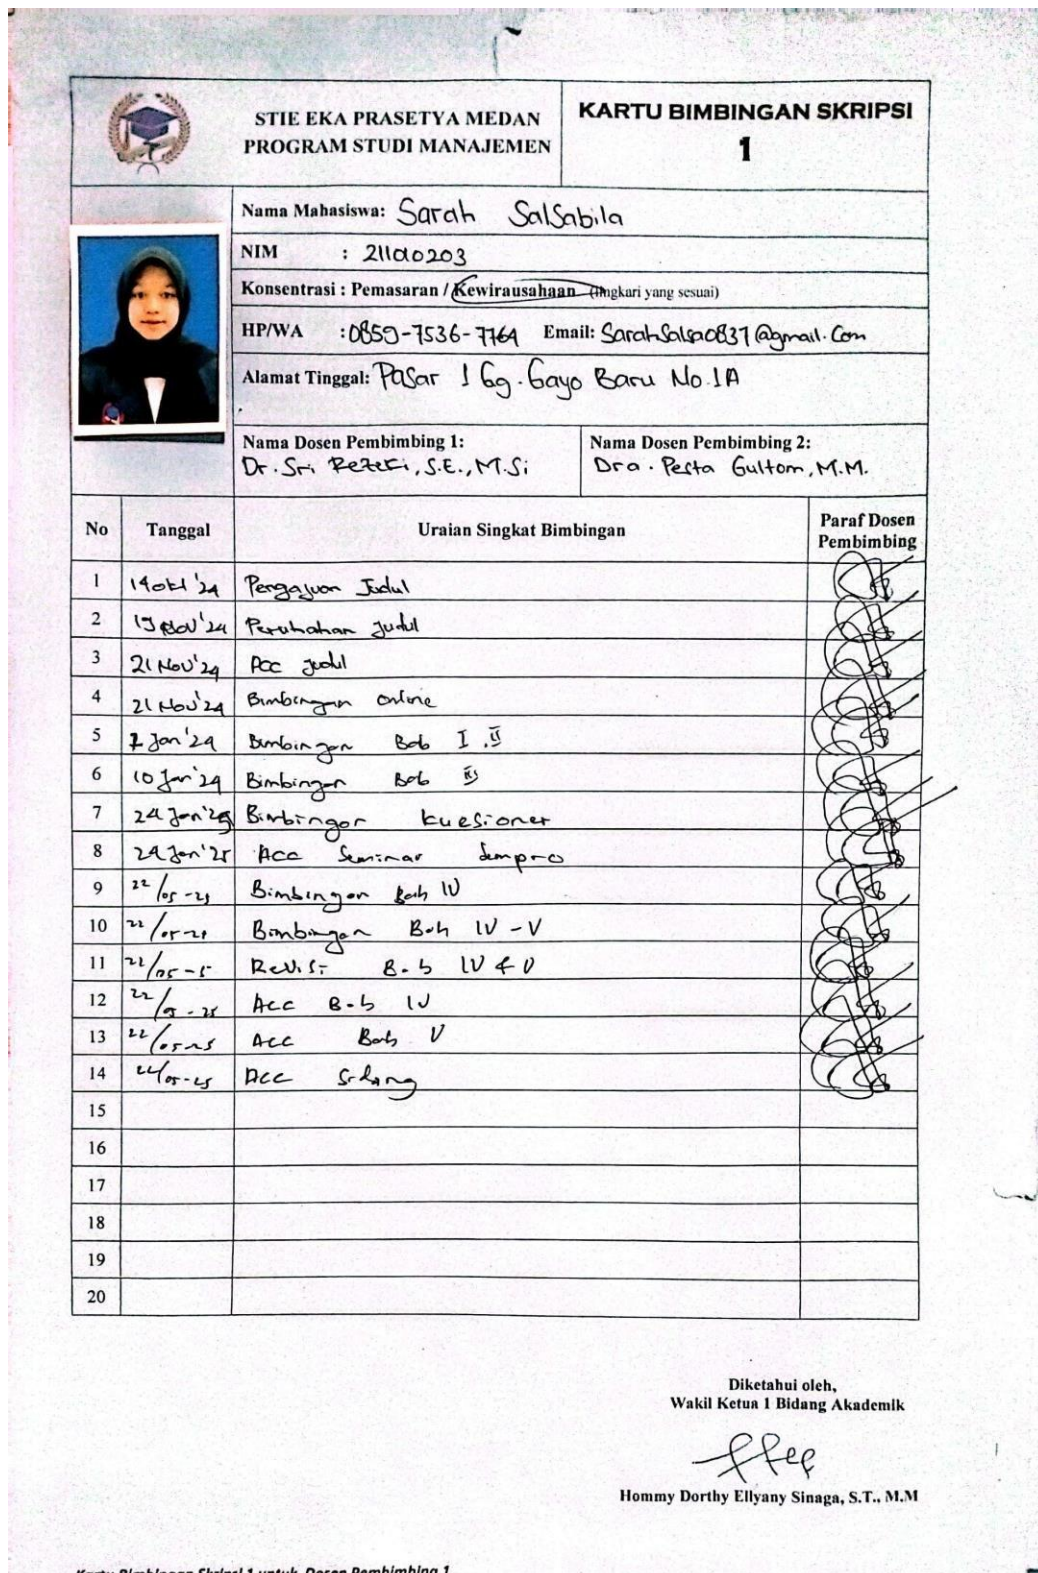 STIE EKA PRASETYA MEDAN
PROGRAM STUDI MANAJEMEN
KARTU BIMBINGAN SKRIPSI
1
Nama Mahasiswa: Sarah Salsabila
NIM : 211010203
Konsentrasi : Pemasaran / Kewirausahaan (lingkari yang sesuai)
HP/WA : 0859-7536-7764 Email: Sarahsalsa0837@gmail.com
Alamat Tinggal: Pasar 1 Gg. Gayo Baru No.1A
Nama Dosen Pembimbing 1: Nama Dosen Pembimbing 2:
Dr. Sri Rezeki, S.E., M.Si Dra. Pesta Gultom, M.M.
No Tanggal Uraian Singkat Bimbingan Paraf Dosen Pembimbing
1 14 okt '24 Pengajuan Judul
2 Nov '24 Perubahan Judul
3 21 Nov '24 Acc Judul
4 21 Nov '24 Bimbingan online
5 Jan '24 Bimbingan Bab I, II
6 10 Jan '24 Bimbingan Bab III
7 24 Jan Bimbingan kuesioner
8 24 Jan '25 Acc Seminar Sempro
9 22/05-25 Bimbingan Bab IV
10 22/05 Bimbingan Bab IV - V
11 22/05 Revisi Bab IV & V
12 22/05-25 Acc Bab IV
13 22/05-25 Acc Bab V
14 22/05-25 Acc Sidang
15
16
17
18
19
20
Diketahui oleh,
Wakil Ketua 1 Bidang Akademik
Hommy Dorthy Ellyany Sinaga, S.T., M.M
Kartu Bimbingan Skripsi 1 untuk Dosen Pembimbing 1